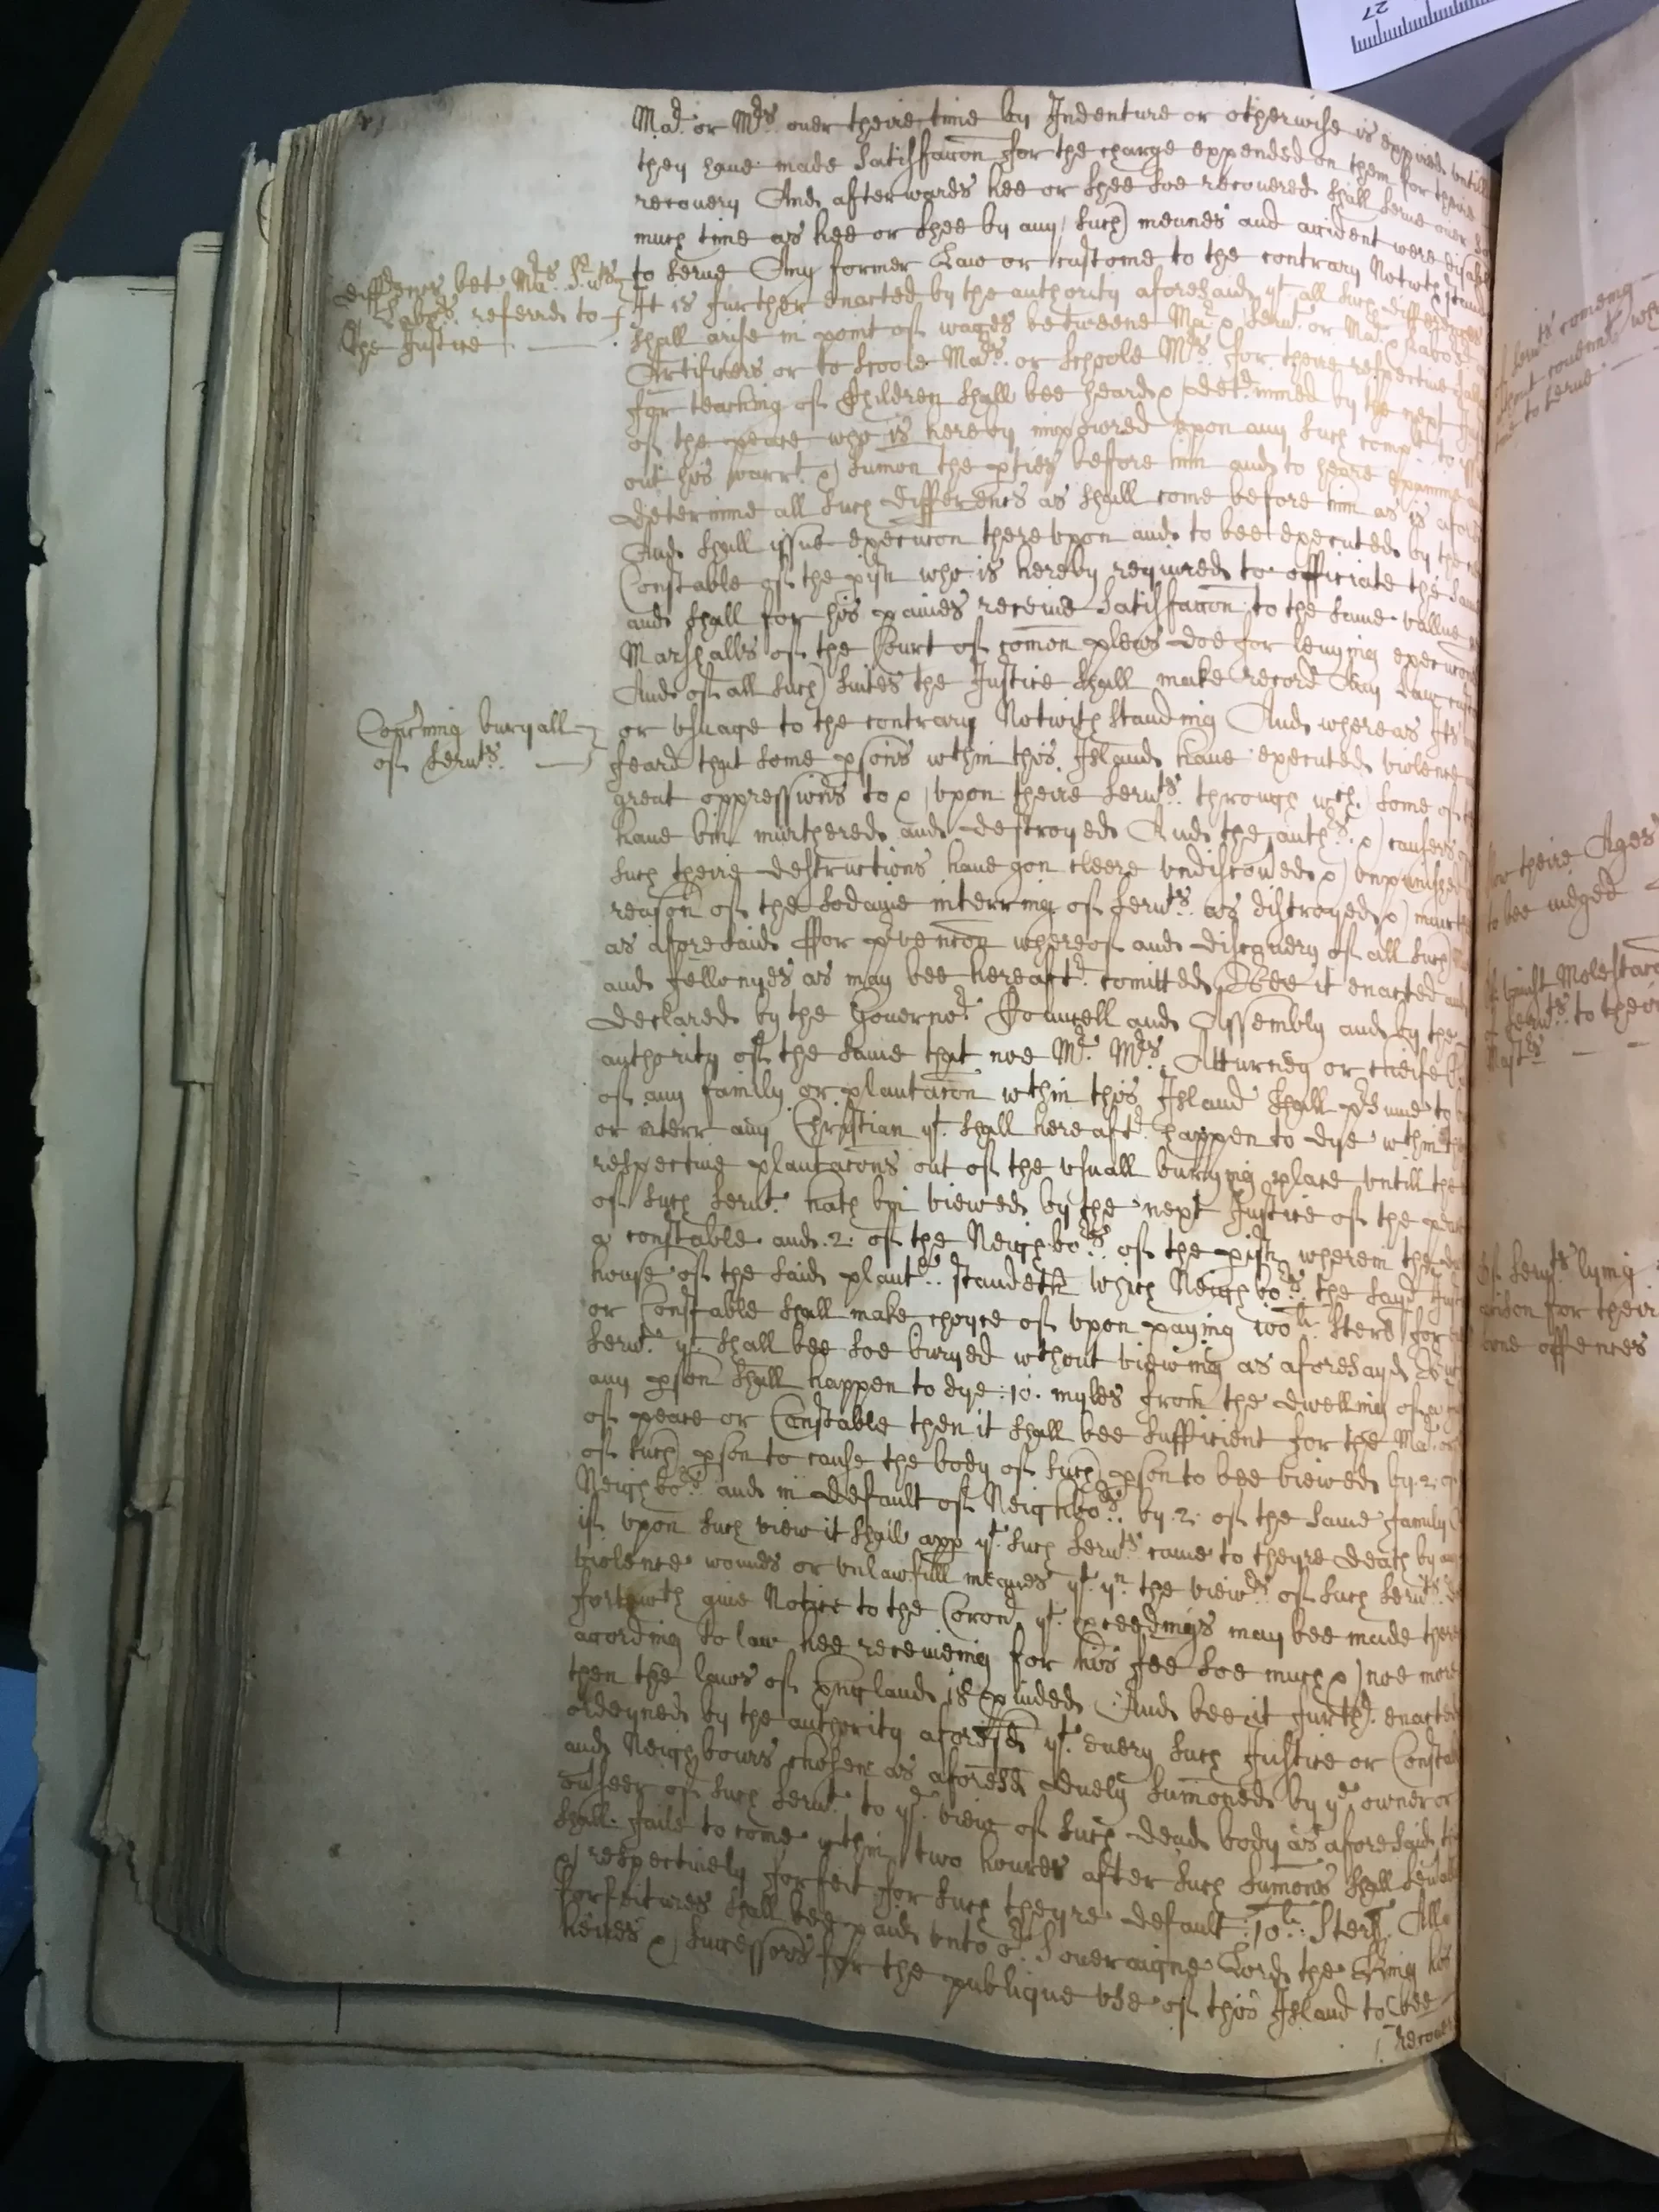 Mar or Mrs. over theire time by Indenture or otherwise is expired untill
they have made Satisfacon for the charge expended on them for theire
recovery And afterwards hee or shee soe recovered shall serve over so
much time as hee or shee by any such meanes and accident were disabl
to serve Any former Law or custome to the contrary Notwthstand
differences bet: Mar. Servts
& labrs. referred to
the Justice
It is further enacted by the authority aforesaid yt. all such differences
shall arise in point of wages betweene Mar. & Servt. or Mar. & Labor.
Artificers or to Scoole Mars. or Schoole Mrs. for theire respective
for teaching of Children shall bee heard & determined by the next
of the peace who is hereby impowred upon any such complt. to
out his warrt. & sumon the pties before him and to heare examine
determine all such differences as shall come before him as is afores
And shall issue execucon thereupon and to bee executed by the
Constable of the pish who is hereby required to officiate the same
and shall for his paines receive Satisfacon to the same vallue
Marshalls of the Court of comon pleas doe for levying execucon
And of all such suites the Justice shall make record Any law
Concrning buryall
of Servts.
or usuage to the contrary Notwithstanding And whereas Its
feard that some psons wthin this Island have executed violence
great oppressions to & upon theire servts. through wch. some of
have bin murthered and destroyed And the authrs. & causers
such theire destructions have gon cleere undiscovred & unpunished
reason of the sodaine interring of servts. as distroyed &
as aforesaid ffor prvencon whereof and discovery of all such
and fellonyes as may bee hereaftr. comitted Bee it enacted and
declared by the Governor. Councell and Assembly and by the
authority of the same that noe Mr. Mrs. Atturney or cheife
of any family or plantacon wthin this Island shall prsume to
or interr any Christian yt. shall hereaftr. happen to dye wthin
respective plantacons out of the usuall burying place untill the
of such servt. hath bin viewed by the next Justice of the peace
a constable and .2. of the Neighbors. of the pish wherein the
house of the said plantr. standeth which Neighbors. the said
or Constable shall make choyce of upon paying 100li. sterl for
servt. yt. shall bee soe buryed wthout viewing as aforesayd
any pson shall happen to dye .10. myles from the dwelling of a
of peace or Constable then it shall bee sufficient for the Mar. or
of such pson to cause the body of such pson to bee viewed by .2. of
Neighbors. and in default of Neighbors. by .2. of the same family
if upon such view it shall app yt. such servts. came to theyre death by any
violence wounds or unlawfull meanes yt. yn. the viewrs. of such servts.
forthwith give Notice to the Coronr. yt. pceedings may bee made there
acording to law hee receiveing for his fee soe much & noe more
then the laws of England is pvided. And bee it furthr. enacted
ordeyned by the authority aforesd yt. every such Justice or Consta
and Neighbours chosen as aforesd duely sumoned by ye owner or
ovrseer of such servt. to ye. view of such dead body as aforesaid
shall faile to come wthin two houres after such sumons shall
& respectively forfeit for such theyre default .10li. sterl. All
forfeitures shall bee paid unto or. Soveraigne Lord the King his
heires & successors for the publique use of this Island to bee
Recover
servts comeing
to serve
theire Ages
to bee iudged
Molestacon
servts. to theire
Mastrs
of servts lying
prison for theire
owne offences